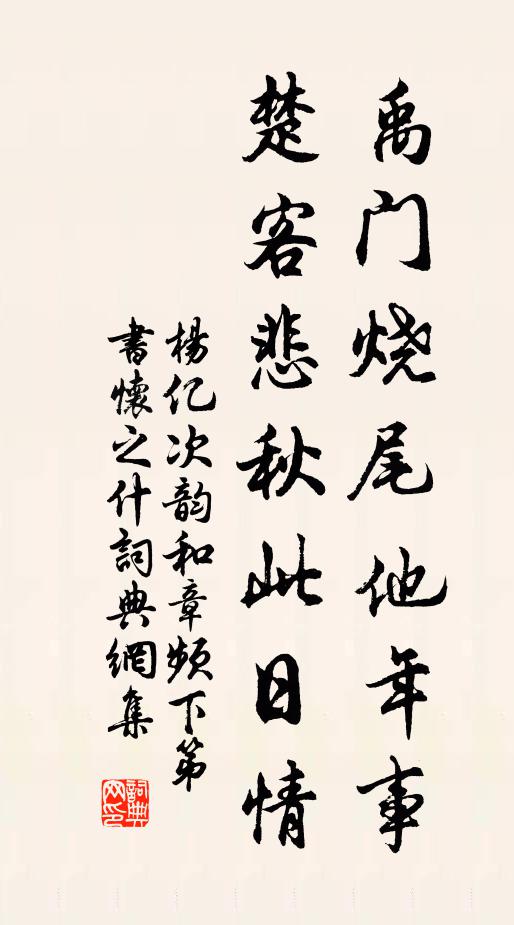 禹门烧尾他年事
楚客悲秋此日情
楊亿次韵和章频下第
書懷之什詞典網集
詞典网印